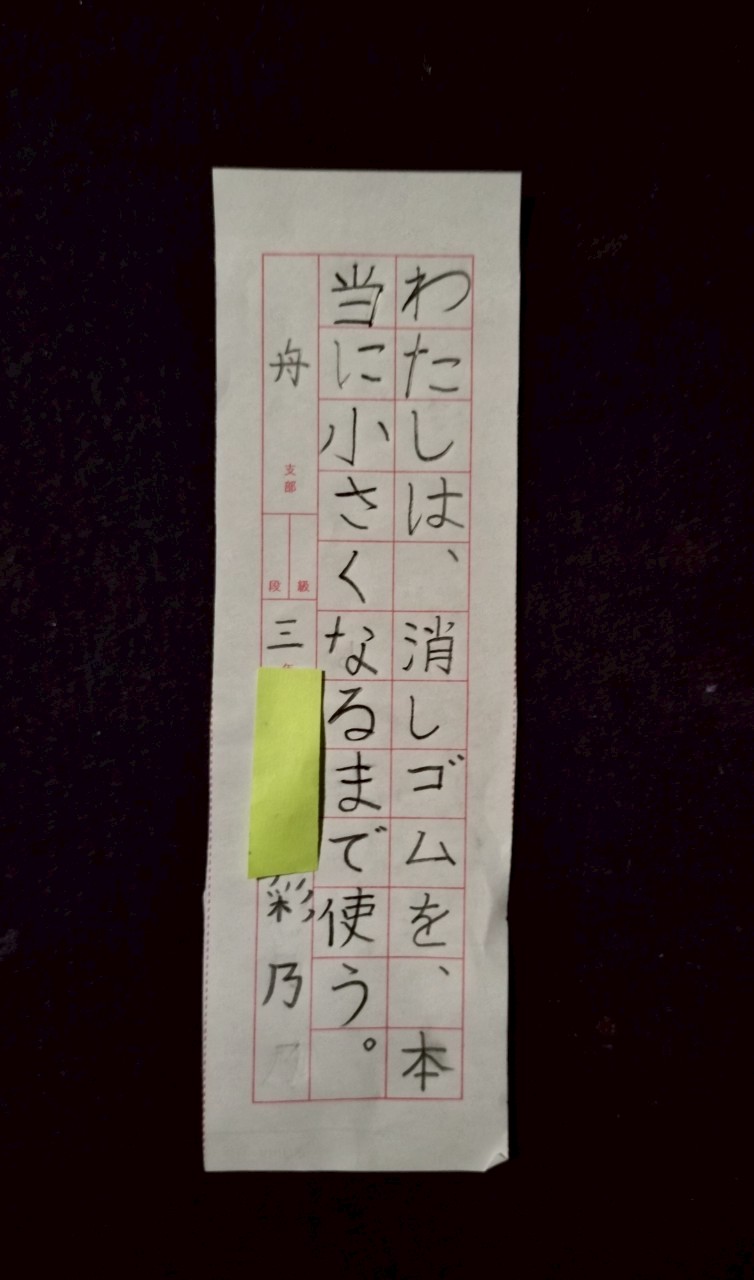 わたしは、消しゴムを、本
当に小さくなるまで使う。
舟 支部
級
段
三年
彩乃